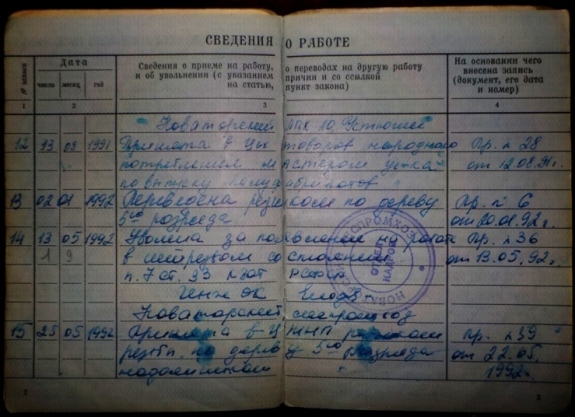 СВЕДЕНИЯ О РАБОТЕ
№ записи
Дата
число месяц год
Сведения о приеме на работу, о переводах на другую работу
и об увольнении (с указанием причин и со ссылкой
на статью, пункт закона)
На основании чего
внесена запись
(документ, его дата
и номер)
1 2 3 4
Новаторский ЛПХ
12 13 09 1991 Принята в цех товаров народного Пр. № 28
потребления мастером участка от 12.08.91г.
по выпуску полуфабрикатов
13 02 01 1992 Переведена резчиком по дереву Пр. № 6
5го разряда от 20.01.92г.
14 13 05 1992 Уволена за появление на работе Пр. № 36
в нетрезвом состоянии от 13.05.92г.
п. 7 ст. 33 КЗоТ РСФСР
Новаторский леспромхоз
15 25 05 1992 Принята в ЦТНП резчиком Пр. № 39
по дереву 5го разряда от 22.05.
надомником 1992г.